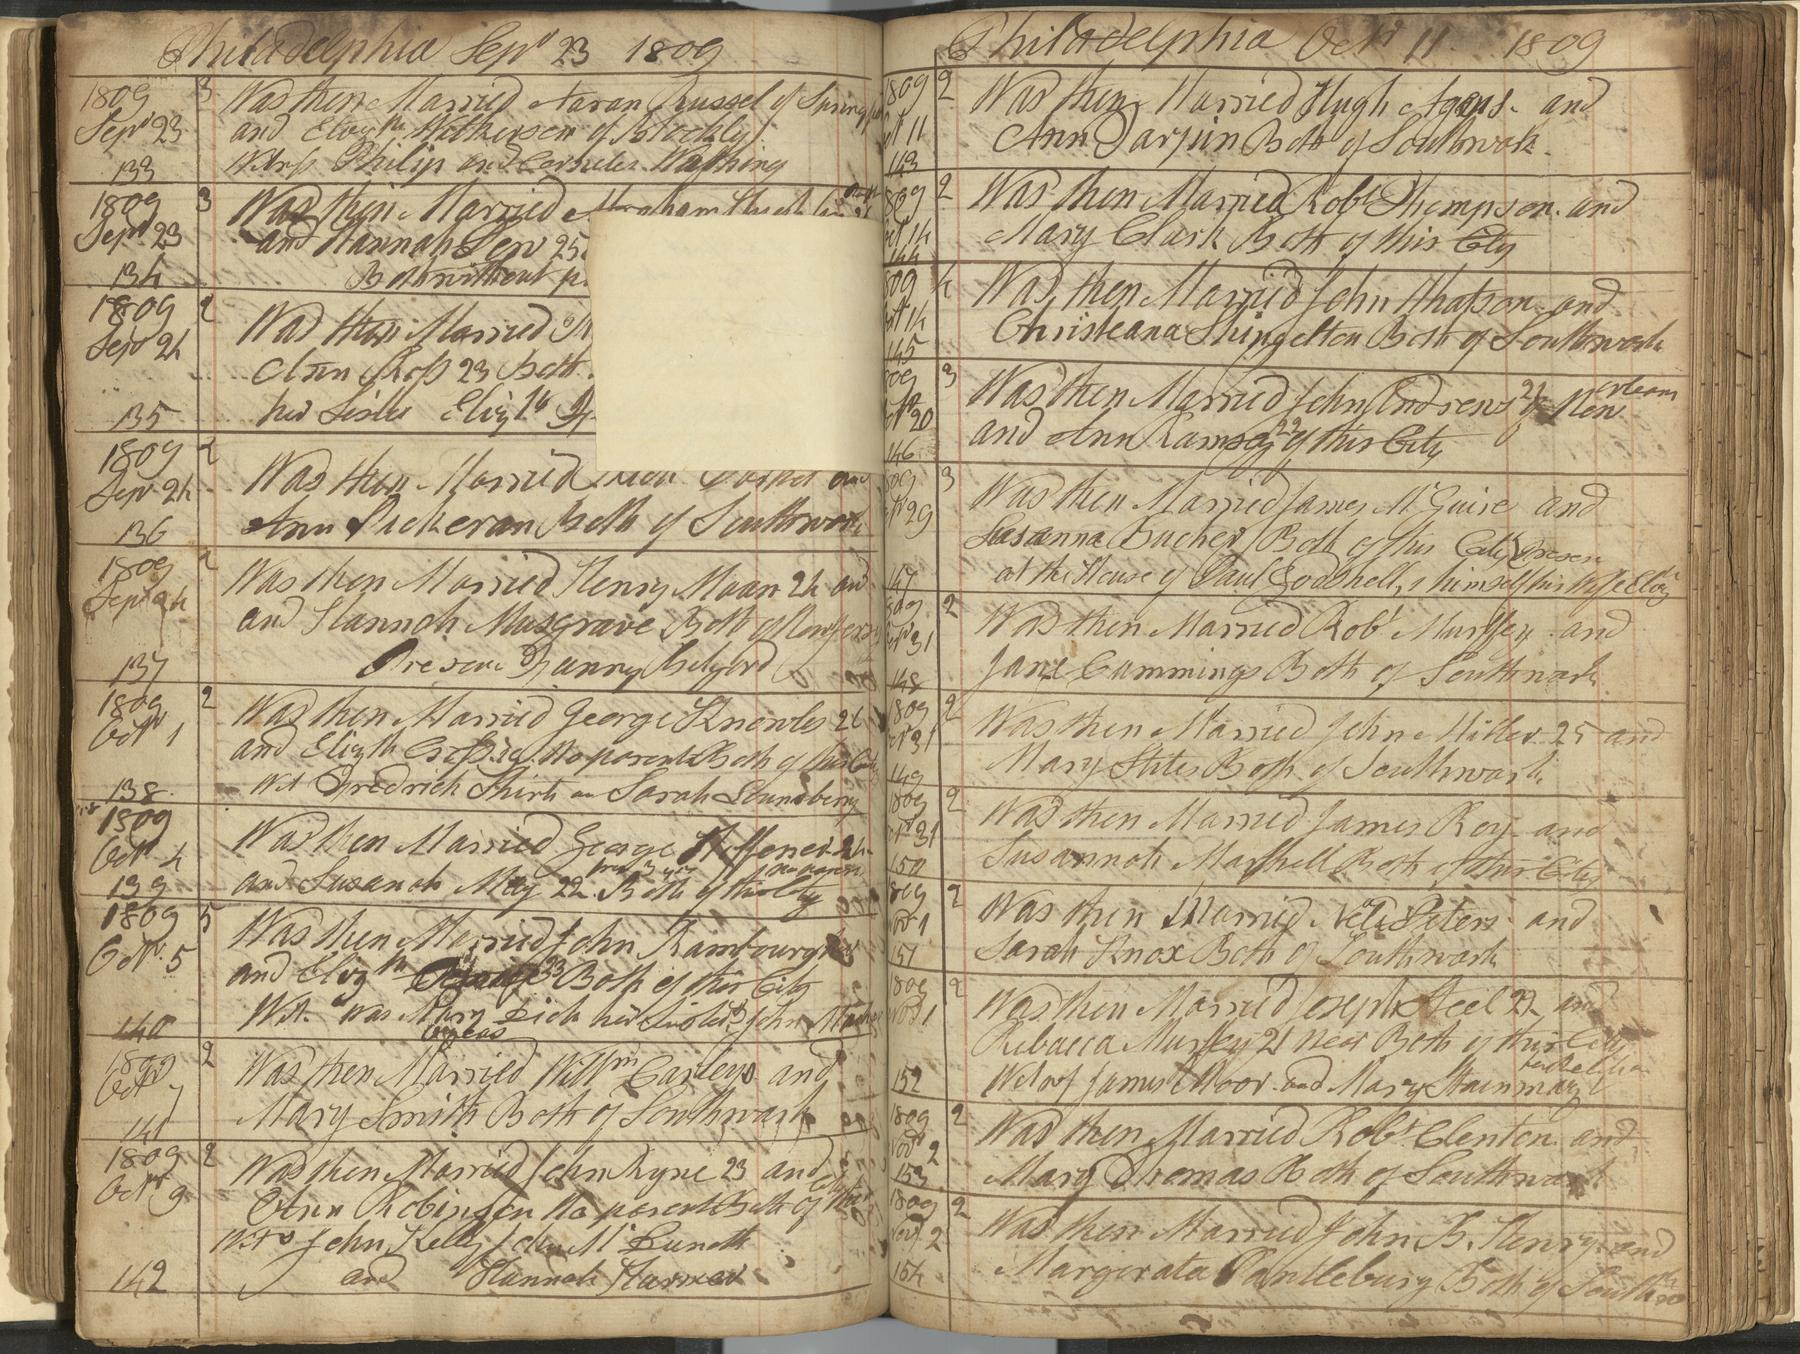 Philadelphia Sepr 23 1809
1809 3 Was then Married Aaran Russel of
Sepr 23 and Elizth Wilkerson of Blockly
133 Witness Philip and Cornelia
1809 3 Was then Married Abraham
Sepr 23 and Hannah 25
134 Both without
1809 2 Was then Married
Sepr 24 Ann Ross 23 Both
135 her Sister Elizth
1809 2 Was then Married and
Sepr 24 Ann Dickeran Both of Southwark
136
1809 2 Was then Married Henry Maan 24 and
Sepr 24 and Hannah Musgrave Both of
137 Presen Fanny Belford
1809 2 Was then Married George Knowles 26
Octr 1 and Elizth No parents Both of this City
138 Wit Fredrich Shirk an Sarah
1809 Was then Married George 24
Octr 4 and Susanah May 22 Both of this City
139
1809 5 Was then Married John
Octr 5 and Elizth 23 Both of this City
140 Wit Was Mary Rich her Sister John
1809 2 Was then Married Willm Carleys and
Octr 7 Mary Smith Both of Southwark
141
1809 2 Was then Married John Ryne 23 and
Octr 9 Ann Robinson No parents Both of
Wits John Kelly John Mc
142 and Hannah
Philadelphia Octr 11 1809
1809 2 Was then Married Hugh and
Octr 11 Ann Darpin Both of Southwark
143
1809 2 Was then Married Robt Thompson and
Octr 14 Mary Clark Both of this City
144
1809 4 Was then Married John and
Octr 14 Christeana Shingelton Both of Southwark
145
1809 3 Was then Married John Andrews 21 of New orleans
Octr 20 and Ann Ramsey 22 of this City
146
1809 3 Was then Married James McGuire and
Octr 29 Susanna Bucher Both of this City Presen
147 at the House of Paul himself his Wife Eliz
1809 2 Was then Married Robt Murfey and
Octr 31 Jane Cummings Both of Southwark
148
1809 2 Was then Married John Miller 25 and
Octr 31 Mary Stites Both of Southwark
149
1809 2 Was then Married James Roy and
Octr 31 Susannah Marshell Both of this City
150
1809 2 Was then Married Peters and
Novr 1 Sarah Knox Both of Southwark
151
1809 2 Was then Married Joseph Steel 22 and
Novr 1 Rebacca Murfey 21 near Both of this City
152 Wit of James Moor and Mary Stainmay
1809 2 Was then Married Robt Clenton and
Novr 2 Mary Thomas Both of Southwark
153
1809 2 Was then Married John B. Henry and
Novr 2 Margerata Cantleburg Both of
154